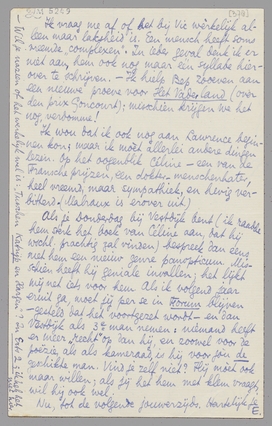 Ik vraag me af of het bij Vic werkelijk al-
leen maar "laksheid" is. Een mensch heeft soms
vreemde "complexen". In ieder geval denk ik er
niet aan, hem ook nog maar een syllabe hier-
over te schrijven. — Ik help Bep zooeven aan
een nieuwe proeve voor Het Vaderland (over
den prix Goncourt); misschien krijgen we het
nog, verdomme!
Ik wou dat ik ook nog aan Lawrence begin-
nen kon; maar ik moet allerlei andere dingen
lezen. Op het oogenblik Céline — een van de
Fransche prijzen, een dokter-menschenhater,
heel vreemd, maar sympathiek, en hevig ver-
bitterd. (Malraux is erover uit)
Als je Donderdag bij Vestdijk bent (ik raadde
hem sterk het boek van Céline aan, dat hij
wschl. prachtig zal vinden) bespreek dan eens
met hem een nieuw genre panopticum. Mis-
schien heeft hij geniale invallen; het lijkt
mij net iets voor hem. Als ik volgend jaar
eruit ga, moet jij per se in Forum blijven
— gesteld dat het voortgezet wordt — en dan
Vestdijk als 3en man nemen: niemand heeft
er meer "recht" op dan hij, en zoowel voor de
poëzie, als als kameraad, is hij voor jou de
geschikte man. Vind je zelf niet? Hij moet ook
maar willen; als jij het hem met klem vraagt,
wil hij ook wel.
Nu, tot de volgende jouwerzijds. Hartelijk je
E.